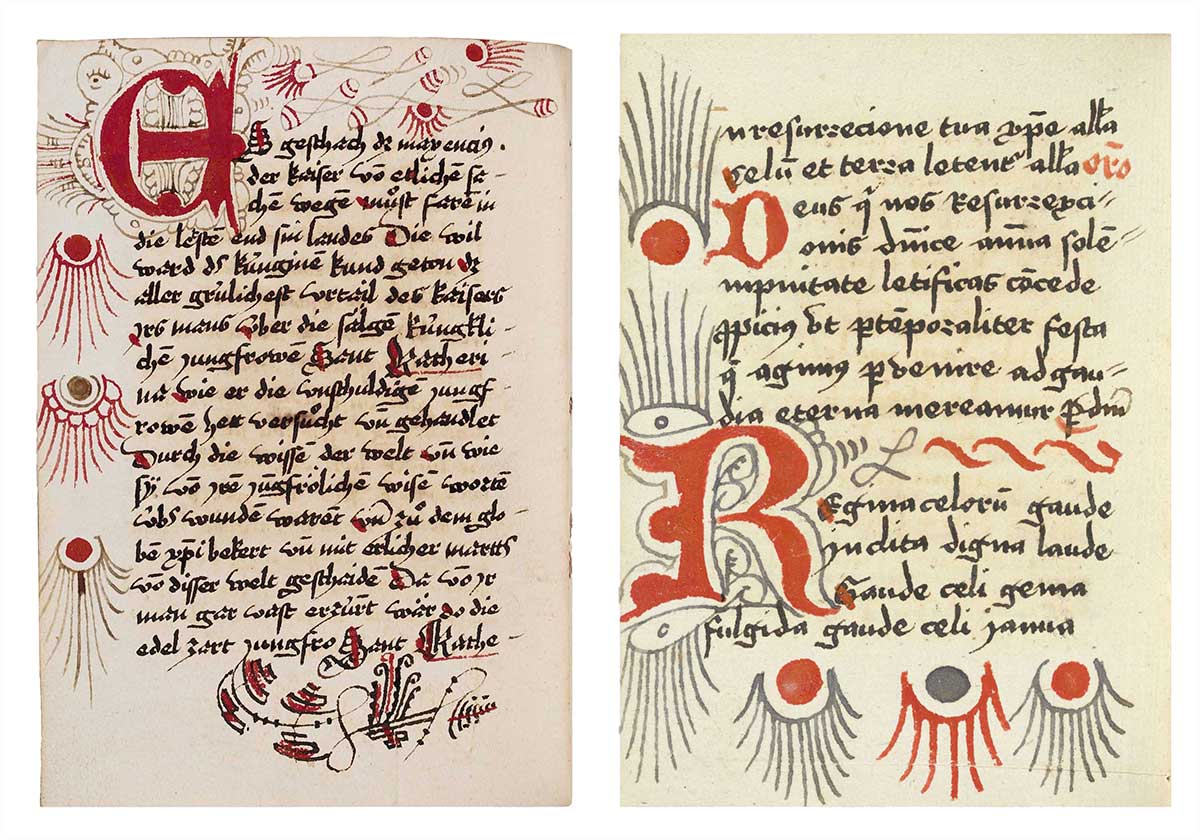 ES geschach dz maxencius .
der kaiser vō etlichē sa-
chē wegē můst farē in
die lestē end sin landes Die wil
ward dē kúnginē kund getan dz
aller grúlichest vrtail des kaisers
jrs mans úber die sälgē kúngkli-
chē jungfrowē Sant Katheri-
na wie er die vnschuldigē jungf-
rowē hett versůcht vn̄ gehandlet
Durch die wissē der welt vn̄ wie
sÿ vō jrē jungfrölichē wisē wortē
úbērwundē warēt vn̄ zů dem glo-
bē xp̄i bekert vn̄ mit erlicher martt
vō disser welt geschaidē Da vō jr
man gar vast erzúrt wär do die
edel zart jungfro Sant Kathe-
n resurrecione tua xp̄e alla
celū et terra letentr alla oro
Deus q̄ nos Resurrexci-
onis dn̄ice annua solē-
mpnitate letificas cōcede
ppicius vt p tēporaliter festa
q̄ agimus pvenire ad gau-
dia eterna mereamur P dm̄
Regina celorū gaude
inclita digna laude
Gaude celi gema
fulgida gaude celi janua